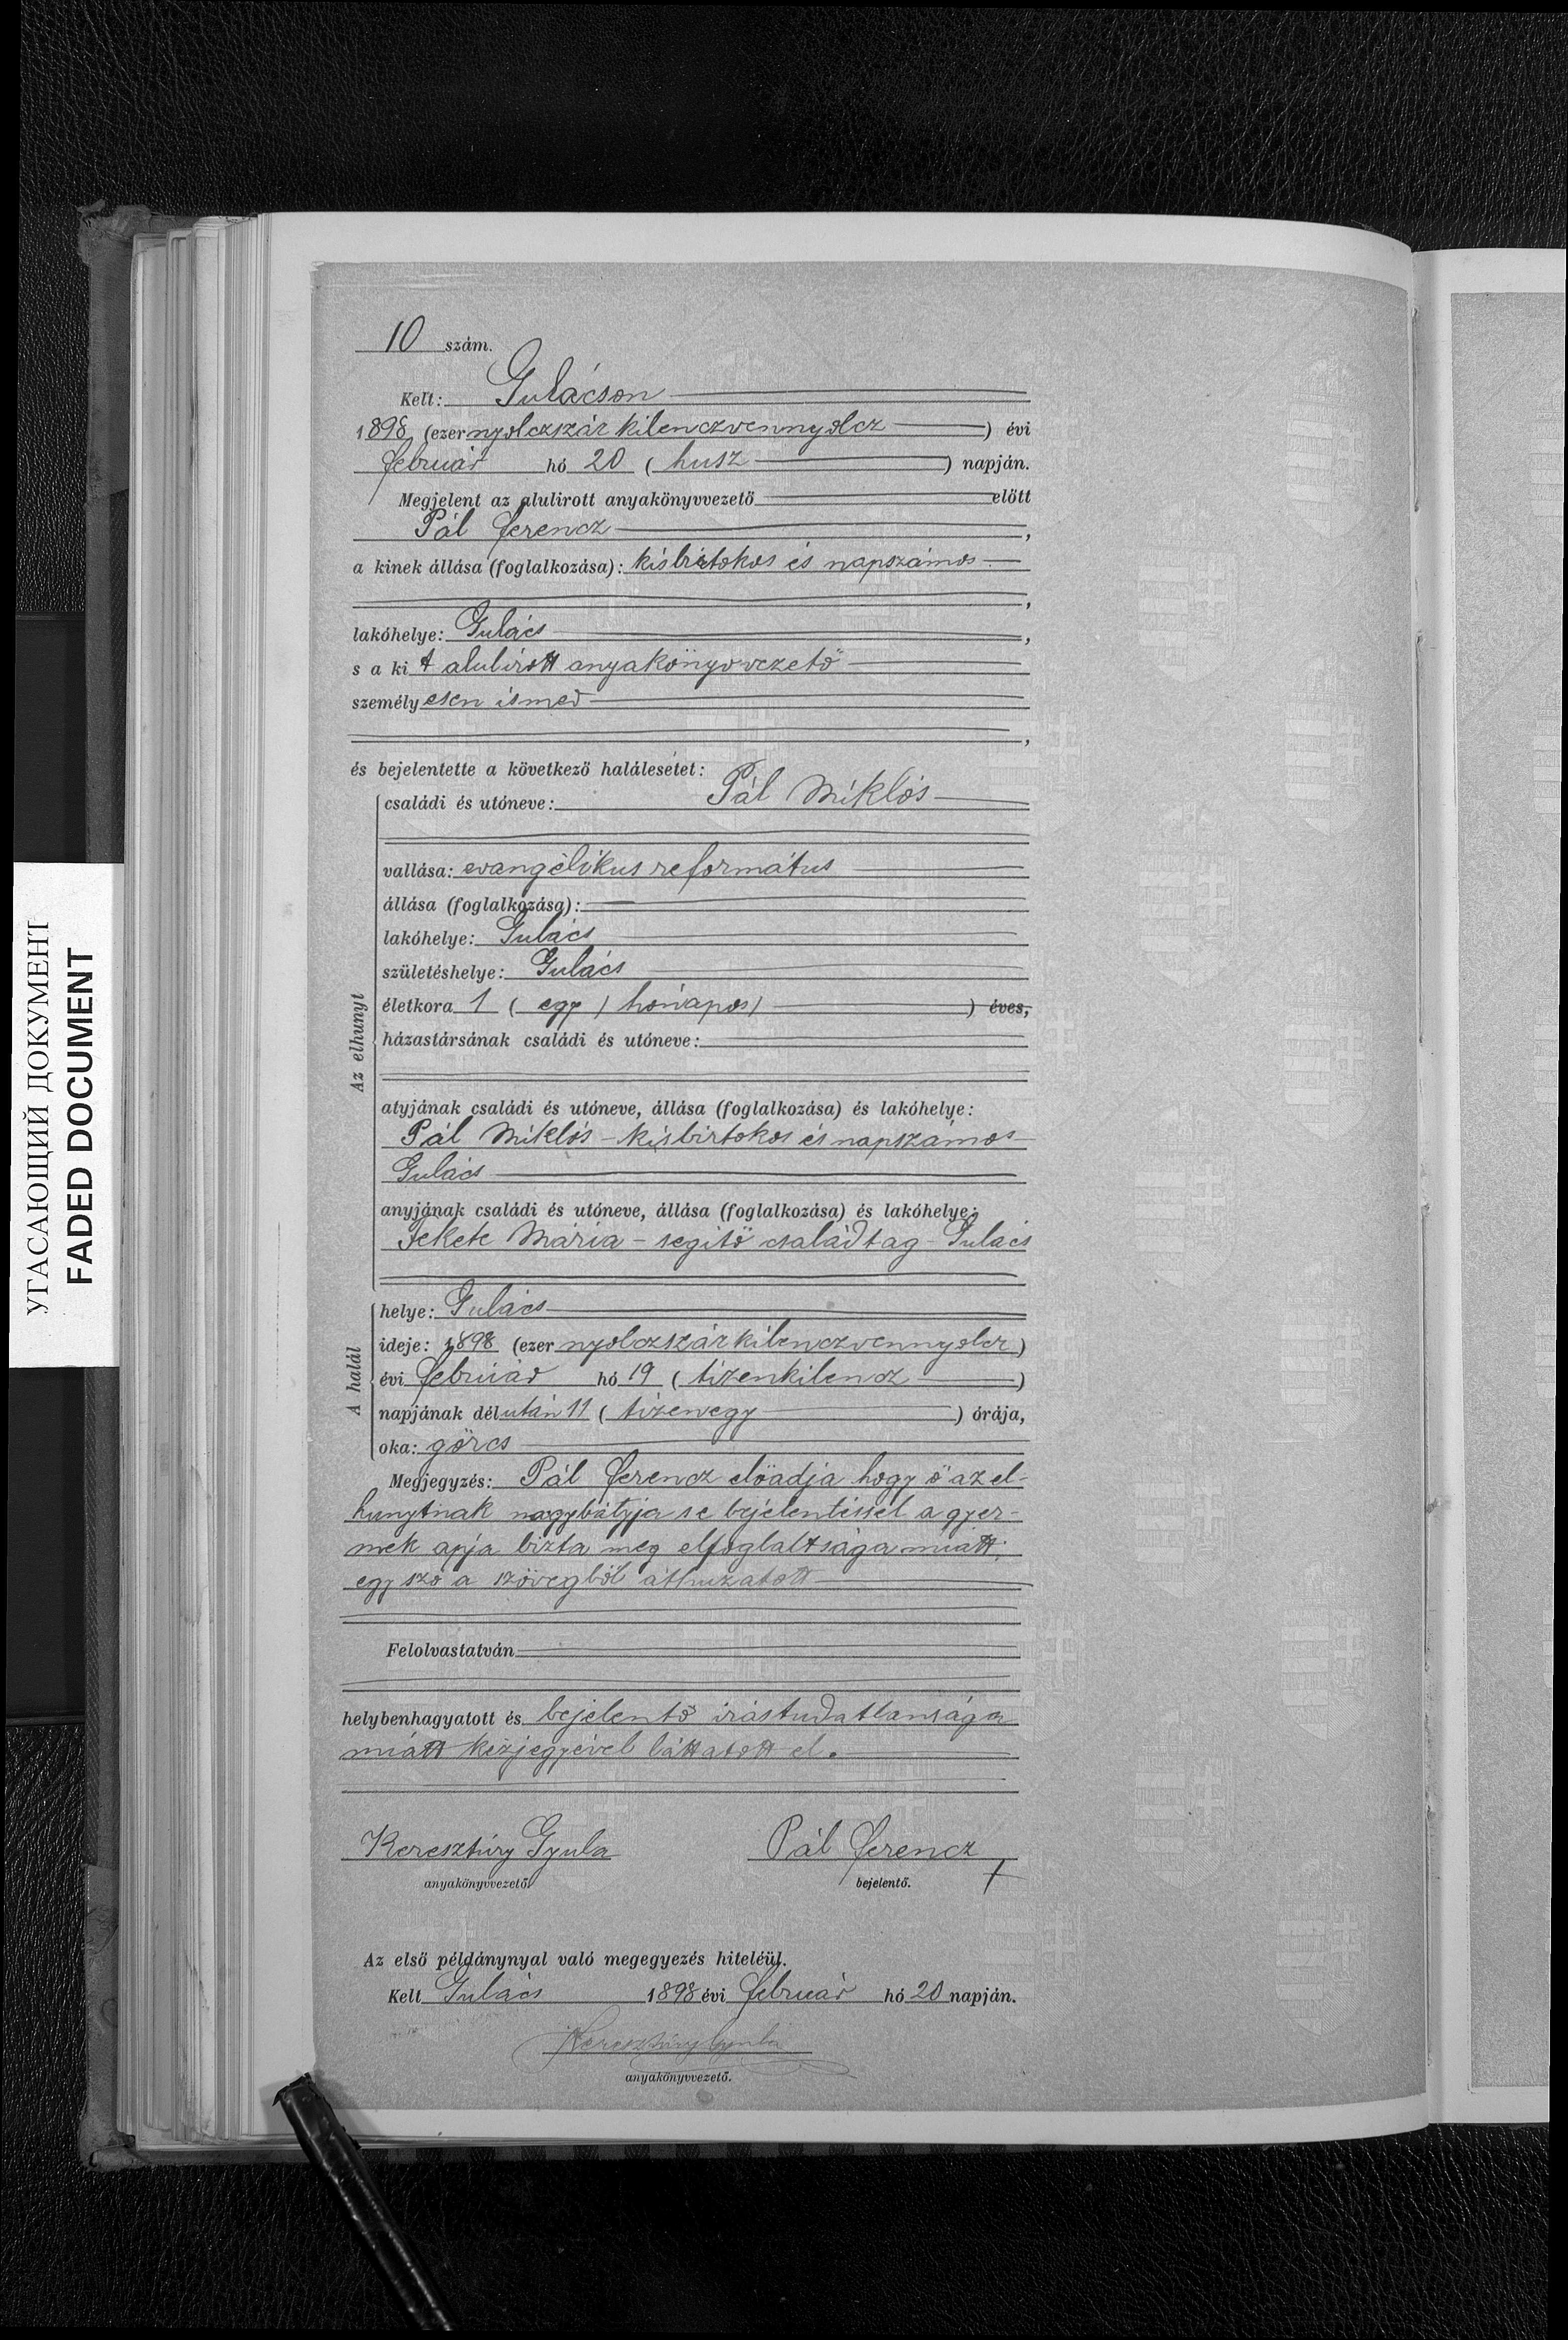 10 szám.
Kelt: Gulácson
1898 (ezer nyolczszáz kilenczvennyolcz) évi
február hó 20 (husz) napján.
Megjelent az alulirott anyakönyvvezető előtt
Pál Ferencz,
a kinek állása (foglalkozása): kisbirtokos és napszámos
,
lakóhelye: Gulács,
s a kit alulírott anyakönyvvezető
személyesen ismer
,
és bejelentette a következő halálesetet:
Az elhunyt
családi és utóneve: Pál Miklós
vallása: evangélikus református
állása (foglalkozása): —
lakóhelye: Gulács
születéshelye: Gulács
életkora 1 (egy) hónapos) ) éves,
házastársának családi és utóneve:
atyjának családi és utóneve, állása (foglalkozása) és lakóhelye:
Pál Miklós – kisbirtokos és napszámos
Gulács
anyjának családi és utóneve, állása (foglalkozása) és lakóhelye:
Fekete Mária – segítő családtag – Gulács
A halál
helye: Gulács
ideje: 1898 (ezer nyolczszáz kilenczvennyolcz)
évi február hó 19 (tizenkilencz)
napjának délután 11 (tizenegy) órája,
oka: görcs
Megjegyzés: Pál Ferencz előadja hogy ő az el-
hunytnak nagybátyja s e bejelentéssel a gyer-
mek apja bizta meg elfoglaltsága miatt;
egy szó a szövegből áthuzatott
Felolvastatván
helybenhagyatott és bejelentő irástudatlansága
miatt kézjegyével láttatott el.
Keresztúry Gyula Pál Ferencz
anyakönyvvezető. bejelentő. +
Az első példánynyal való megegyezés hiteléül.
Kelt Gulács 1898 évi február hó 20 napján.
Keresztúry Gyula
anyakönyvvezető.
УГАСАЮЩИЙ ДОКУМЕНТ
FADED DOCUMENT